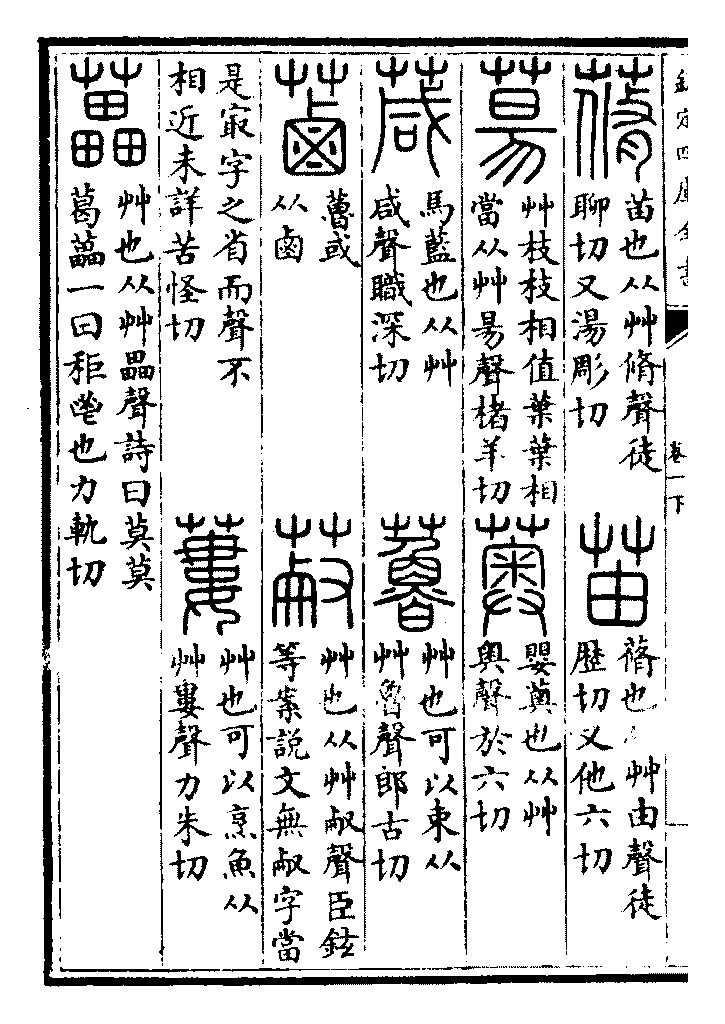 欽定四庫全書
卷一下
蓨
苖也从艸脩聲徒
聊切又湯彫切
苖
蓨也从艸由聲徒
歷切又他六切
艸枝枝相值葉葉相
當从艸昜聲楮羊切
薁
嬰薁也从艸
奥聲於六切
葴
馬藍也从艸
咸聲職深切
艸也可以束从
艸魯聲郎古切
蓾
或
从鹵
艸也从艸㕟聲臣鉉
等案說文無㕟字當
是㝡字之省而聲不
相近未詳苦怪切
蔞
艸也可以烹魚从
艸婁聲力朱切
藟
艸也从艸畾聲詩曰莫莫
葛藟一曰秬鬯也力軌切